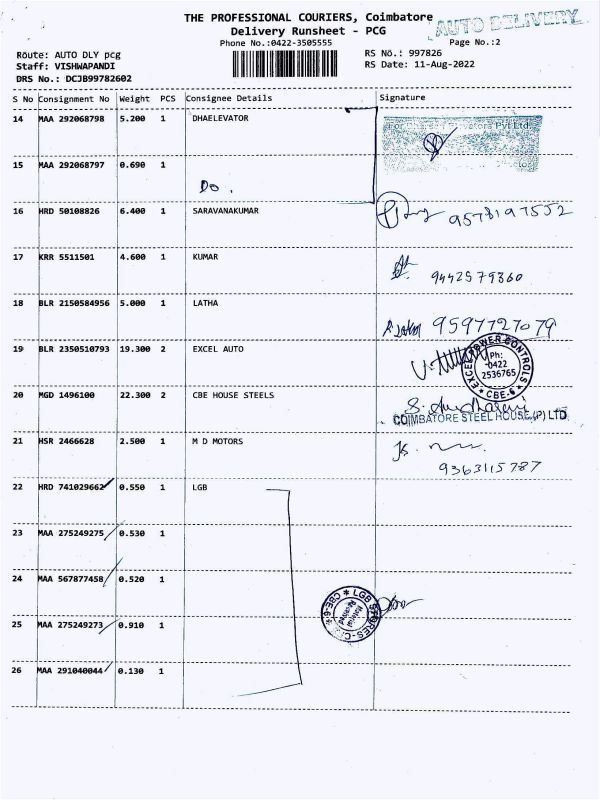 THE PROFESSIONAL COURIERS, Coimbatore
AUTO DELIVERY
Delivery Runsheet - PCG
Phone No.:0422-3505555
Page No.:2
Route: AUTO DLY pcg
RS No.: 997826
Staff: VISHWAPANDI
RS Date: 11-Aug-2022
DRS No.: DCJB99782602
S No Consignment No Weight PCS Consignee Details Signature
14 MAA 292068798 5.200 1 DHAELEVATOR
Pvt Ltd.
15 MAA 292068797 0.690 1
Do.
16 HRD 50108826 6.400 1 SARAVANAKUMAR
9578197552
17 KRR 5511501 4.600 1 KUMAR
9442579860
18 BLR 2150584956 5.000 1 LATHA
9597727079
19 BLR 2350510793 19.300 2 EXCEL AUTO
EXCEL POWER CONTROLS * CBE-6 *
Ph:
0422
2536765
20 MGD 1496100 22.300 2 CBE HOUSE STEELS
COIMBATORE STEEL HOUSE (P) LTD
21 HSR 2466628 2.500 1 M D MOTORS
9363115787
22 HRD 741029662 0.550 1 LGB
23 MAA 275249275 0.530 1
24 MAA 567877458 0.520 1
LGB STORES-C
CBE-6
Material
Received
25 MAA 275249273 0.910 1
26 MAA 291040044 0.130 1